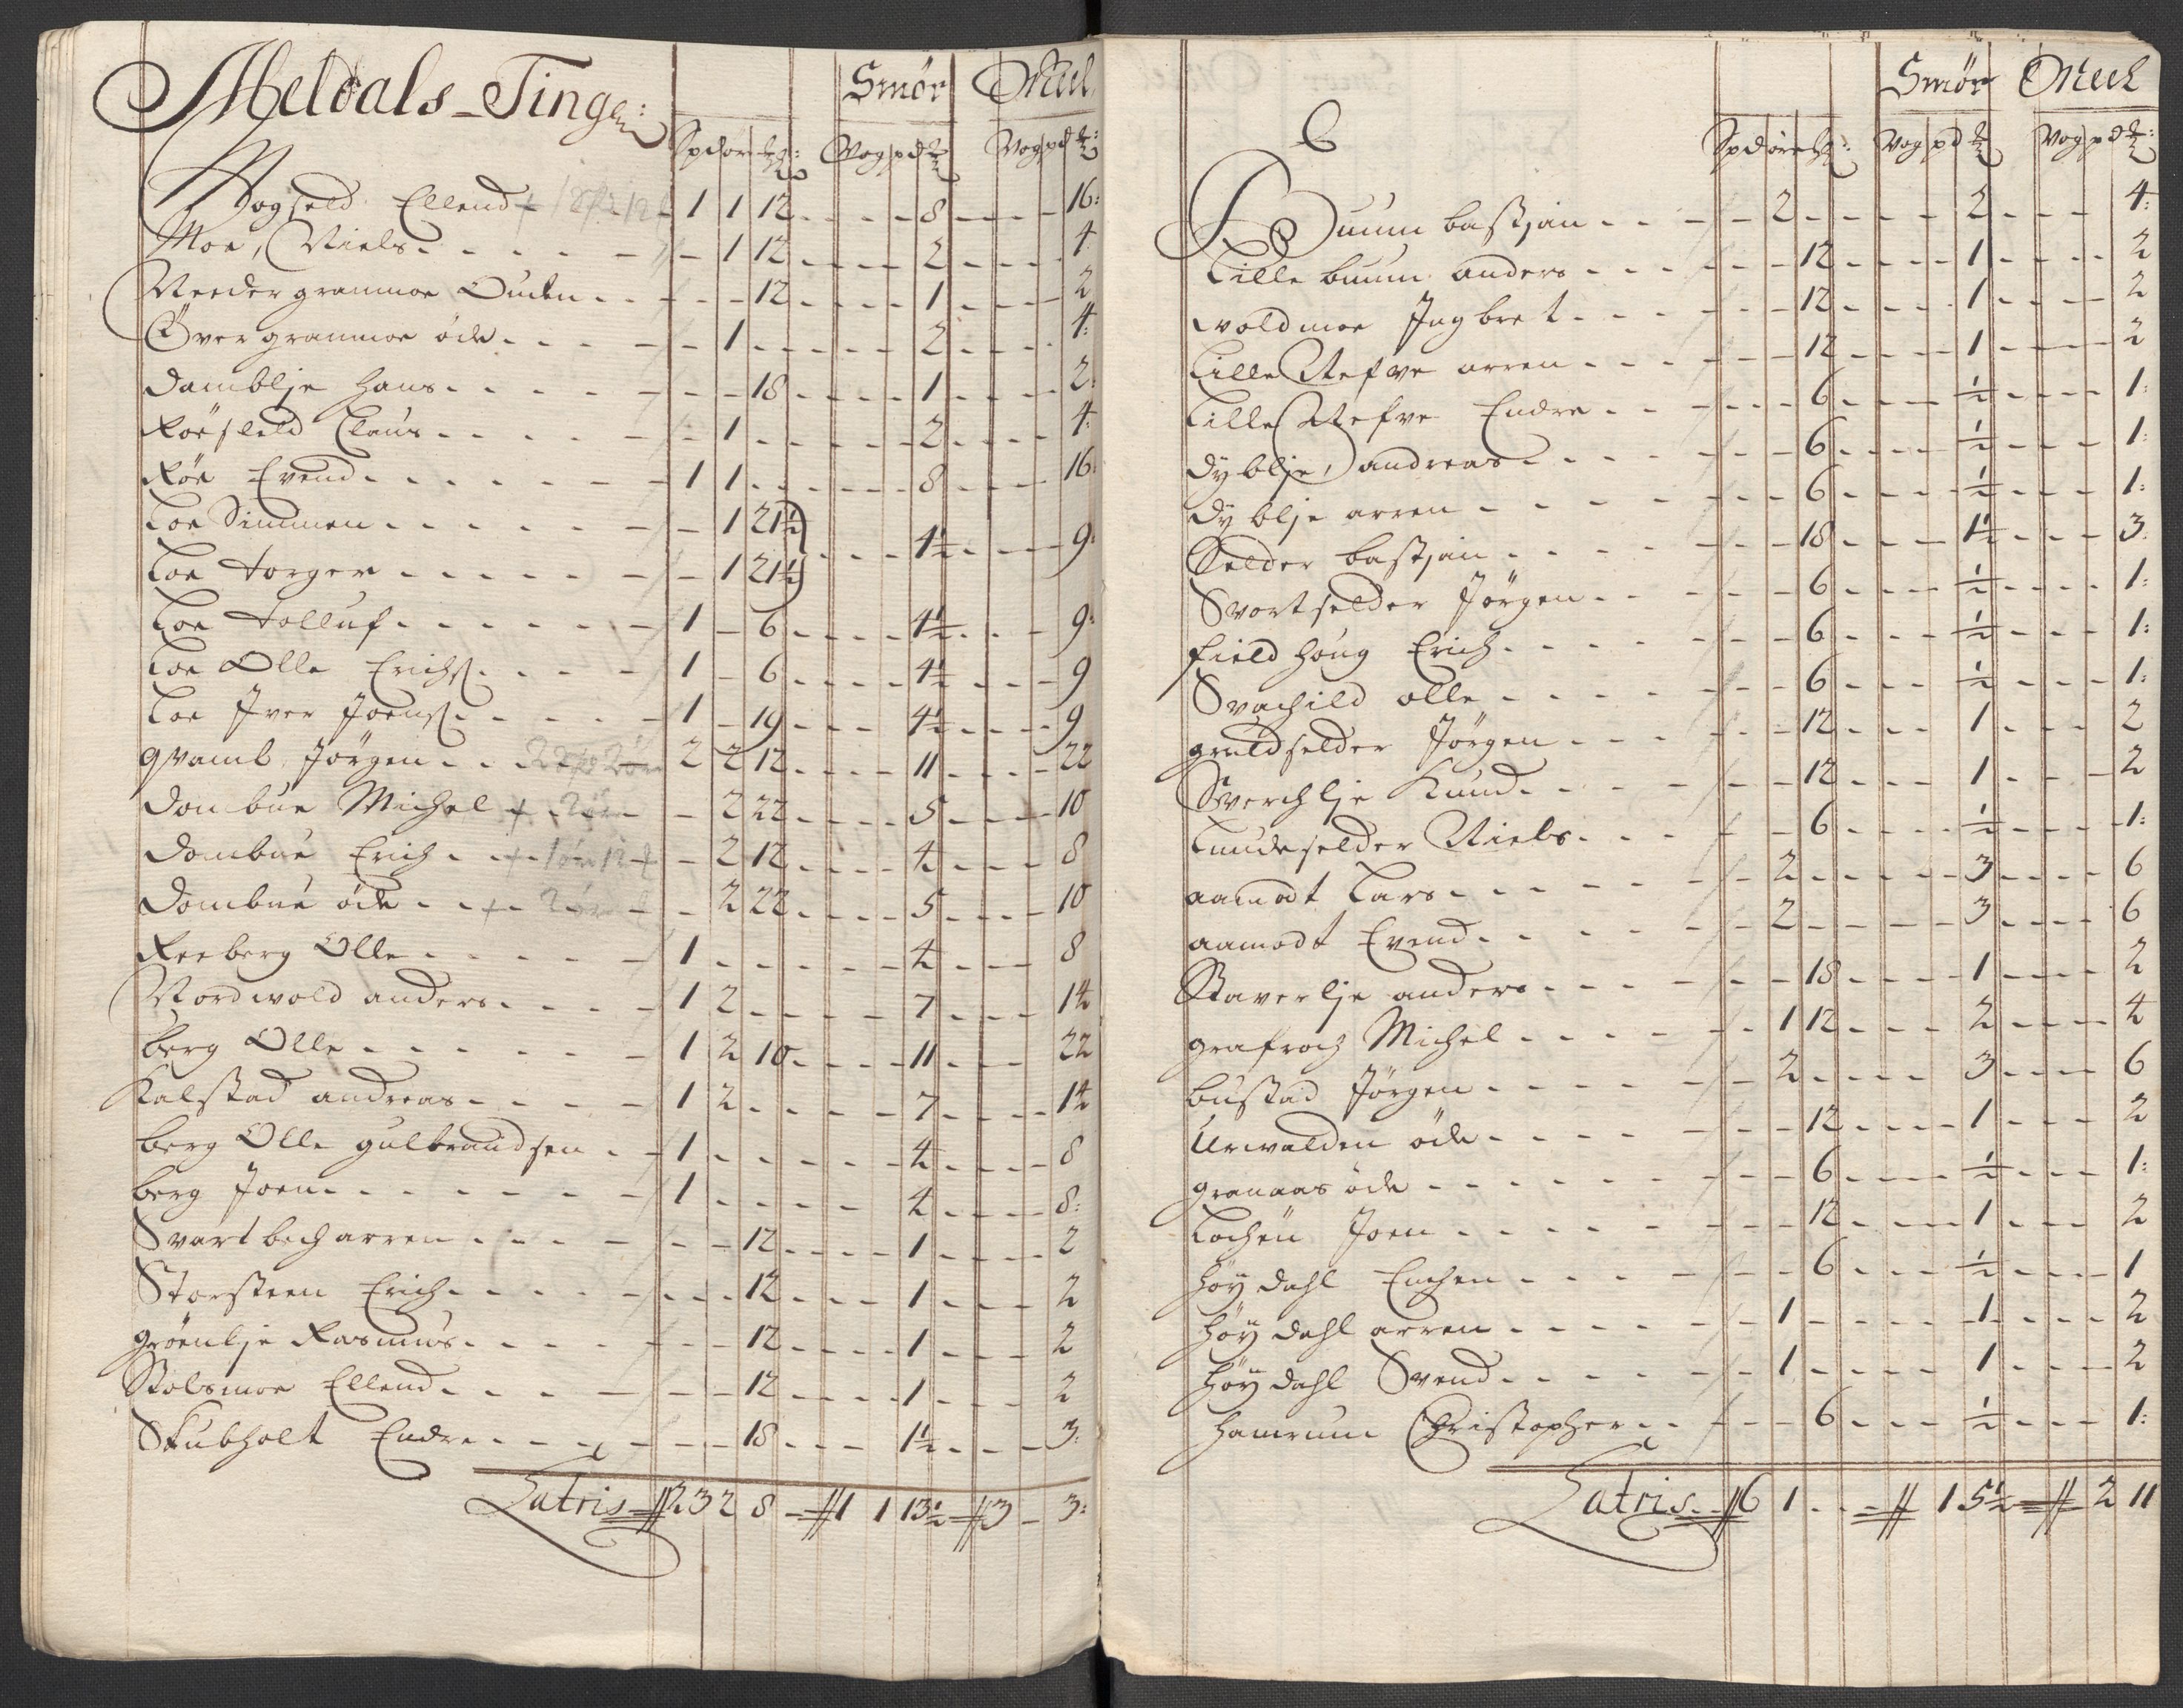 Meldals-Tinge: Smør Meel
Spd ør Vog pd Vog pd
Hogseld Ellend 1 1 12 - - - - 8 - - - - 16:
Moe, Niels - - - - 1 12 - - - - 2 - - - - 4
Needergrammoe Ouden - - - - 12 - - - - 1 - - - - 2
Øvergrammoe øde - - - - 1 - - - - 2 - - - - 4:
Damblje Hans - - - - 18 - - - - 1 - - - - 2:
Røeseld Claus - - - - 1 - - - - 2 - - - - 4:
Røe Evend - - - - 1 1 - - - - 8 - - - - 16
Loe Simmen - - - - 1 21½
- - - - 4½ - - - - 9:
Loe Torger - - - - 1 21½
Loe Tolluf - - - - 1 - 6 - - - - 4½ - - - - 9:
Loe Olle Erichs: - - - - 1 - 6 - - - - 4½ - - - - 9
Loe Iver Joens: - - - - 1 - 19 - - - - 4½ - - - - 9
Qvaml Jørgen - - - 2 2 12 - - - - 11 - - - - 22
Dombue Michel + - - 2 22 - - - - 5 - - - - 10
Dombue Erich - - + 1 ør 12 - 2 12 - - - - 4 - - - - 8
Dombue øde - - + 2 ør - - 2 22 - - - - 5 - - - - 10
Reeberg Olle - - - - 1 - - - - 4 - - - - 8
Nordwold anders - - - - 1 2 - - - - 7 - - - - 14
Berg Olle - - - - 1 2 10 - - - - 11 - - - - 22
Kalstad andreas - - - - 1 2 - - - - 7 - - - - 14
Berg Olle gulbrandsen - - 1 - - - - 4 - - - - 8
Berg Joen - - - - 1 - - - - 4 - - - - 8:
Svartbech arren - - - - 12 - - - - 1 - - - - 2
Storsteen Erich - - - - 12 - - - - 1 - - - - 2
Grøenlje Rasmus - - - - 12 - - - - 1 - - - - 2
Stolsmoe Ellend - - - - 12 - - - - 1 - - - - 2
Skubholt Endre - - - - 18 - - - - 1½ - - - - 3:
Latris 23 2 8 - 1 1 13½ 3 - 3:
Smør Meel
Spd øre Vog pd Vog pd
Buum bastjan - - - 2 - - - - 2 - - - - 4:
Lille buum anders - - - - 12 - - - - 1 - - - - 2
woldmoe Ingbret - - - - 12 - - - - 1 - - - - 2
Lille Refve arren - - - - 12 - - - - 1 - - - - 2
Lille Refve Endre - - - - 6 - - - - ½ - - - - 1:
Dyblje, andreas - - - - 6 - - - - ½ - - - - 1:
Dyblje arren - - - - 6 - - - - ½ - - - - 1:
Selder bastjan - - - - 18 - - - - 1½ - - - - 3:
Svortselder Jørgen - - - - 6 - - - - ½ - - - - 1:
Field houg Erich - - - - 6 - - - - ½ - - - - 1:
Svahild olle - - - - 6 - - - - ½ - - - - 1:
gruldselder Jørgen - - - - 12 - - - - 1 - - - - 2
Sverchlje Knud - - - - 12 - - - - 1 - - - - 2
Lundeselder Niels - - - - 6 - - - - ½ - - - - 1:
aamodt Lars - - - - 2 - - - - 3 - - - - 6
aamodt Evend - - - - 2 - - - - 3 - - - - 6
Staverlje anders - - - - 18 - - - - 1 - - - - 2
grafroch Michel - - - - 1 12 - - - - 2 - - - - 4
bustad Jørgen - - - - 2 - - - - 3 - - - - 6
Urwalden øde - - - - 12 - - - - 1 - - - - 2
granaas øde - - - - 6 - - - - ½ - - - - 1:
Lochen Joen - - - - 12 - - - - 1 - - - - 2
Høydahl Enchen - - - - 6 - - - - ½ - - - - 1
Høydahl arren - - - - 1 - - - - 1 - - - - 2
Høydahl Svend - - - - 1 - - - - 1 - - - - 2
Hamrum Christopher - - - - 6 - - - - ½ - - - - 1:
Latris 6 1 - - 1 5½ 2 11